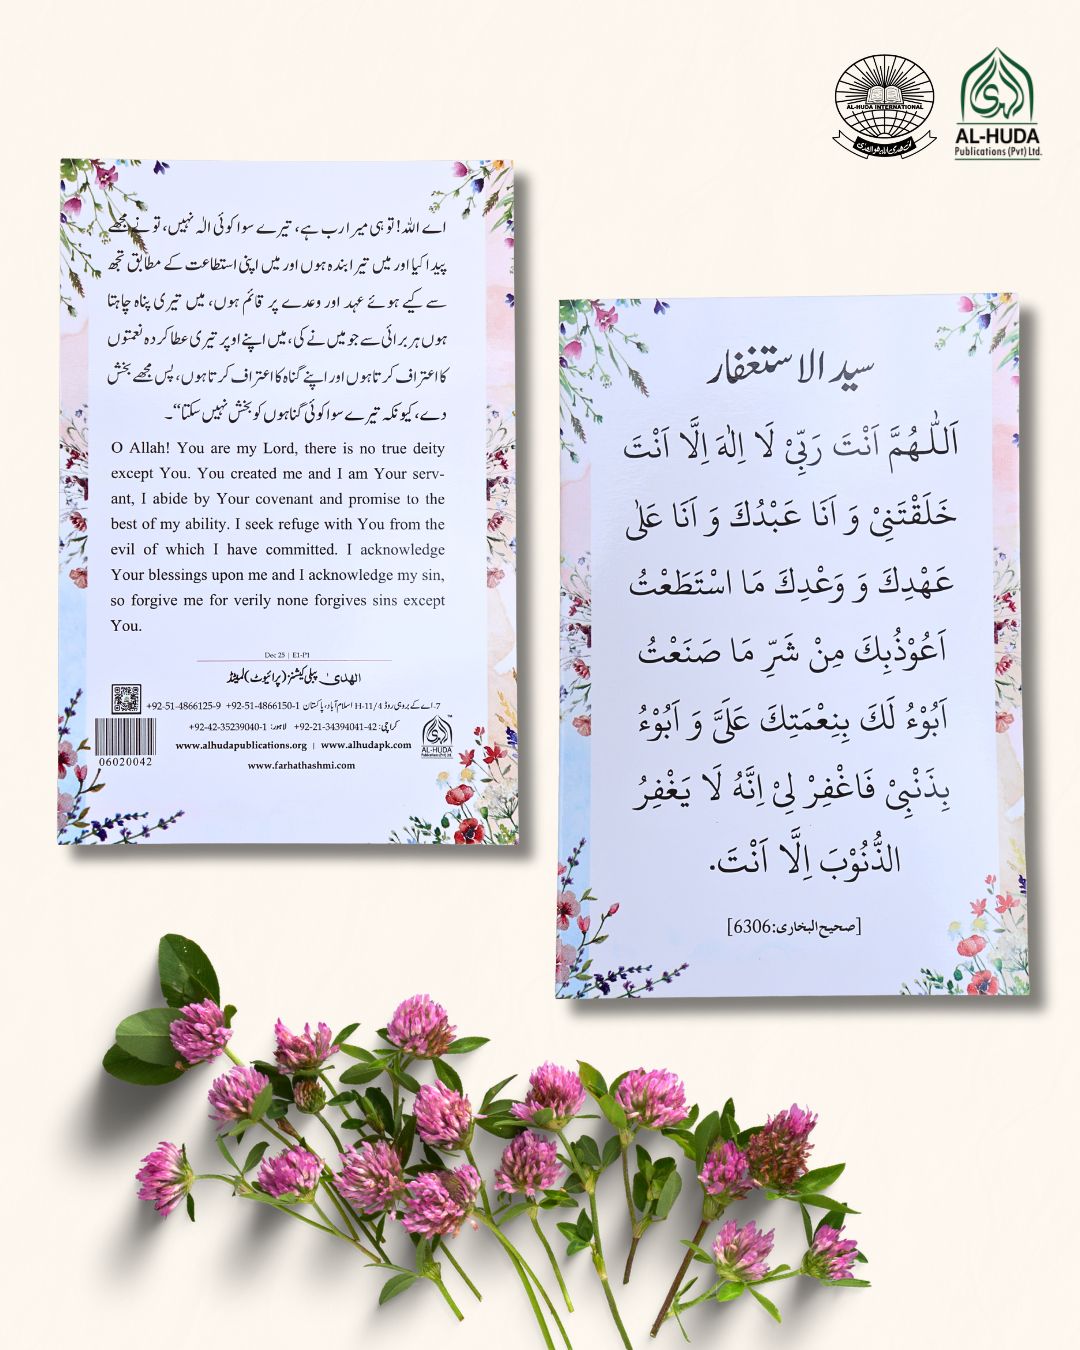 AL-HUDA INTERNATIONAL
AL-HUDA
Publications (Pvt) Ltd.
اے اللہ! تو ہی میرا رب ہے، تیرے سوا کوئی الٰہ نہیں، تو نے مجھے
پیدا کیا اور میں تیرا بندہ ہوں اور میں اپنی استطاعت کے مطابق تجھ
سے کیے ہوئے عہد اور وعدے پر قائم ہوں، میں تیری پناہ چاہتا
ہوں ہر برائی سے جو میں نے کی، میں اپنے اوپر تیری عطا کردہ نعمتوں
کا اعتراف کرتا ہوں اور اپنے گناہ کا اعتراف کرتا ہوں، پس مجھے بخش
دے، کیونکہ تیرے سوا کوئی گناہوں کو بخش نہیں سکتا“۔
O Allah! You are my Lord, there is no true deity
except You. You created me and I am Your serv-
ant, I abide by Your covenant and promise to the
best of my ability. I seek refuge with You from the
evil of which I have committed. I acknowledge
Your blessings upon me and I acknowledge my sin,
so forgive me for verily none forgives sins except
You.
Dec 25 | E1-P1
الھدیٰ پبلی کیشنز (پرائیوٹ) لمیٹڈ
7-اے کے بروہی روڈ H-11/4 اسلام آباد، پاکستان +92-51-4866150-1 +92-51-4866125-9
کراچی: +92-21-34394041-42 لاہور: +92-42-35239040-1
www.alhudapublications.org | www.alhudapk.com
www.farhathashmi.com
06020042
AL-HUDA
Publications (Pvt) Ltd.
سید الاستغفار
اَللّٰهُمَّ اَنْتَ رَبِّىْ لَا اِلٰهَ اِلَّا اَنْتَ
خَلَقْتَنِىْ وَ اَنَا عَبْدُكَ وَ اَنَا عَلٰى
عَهْدِكَ وَ وَعْدِكَ مَا اسْتَطَعْتُ
اَعُوْذُبِكَ مِنْ شَرِّ مَا صَنَعْتُ
اَبُوْءُ لَكَ بِنِعْمَتِكَ عَلَىَّ وَ اَبُوْءُ
بِذَنْبِىْ فَاغْفِرْ لِىْ اِنَّهُ لَا يَغْفِرُ
الذُّنُوْبَ اِلَّا اَنْتَ.
[صحیح البخاری: 6306]